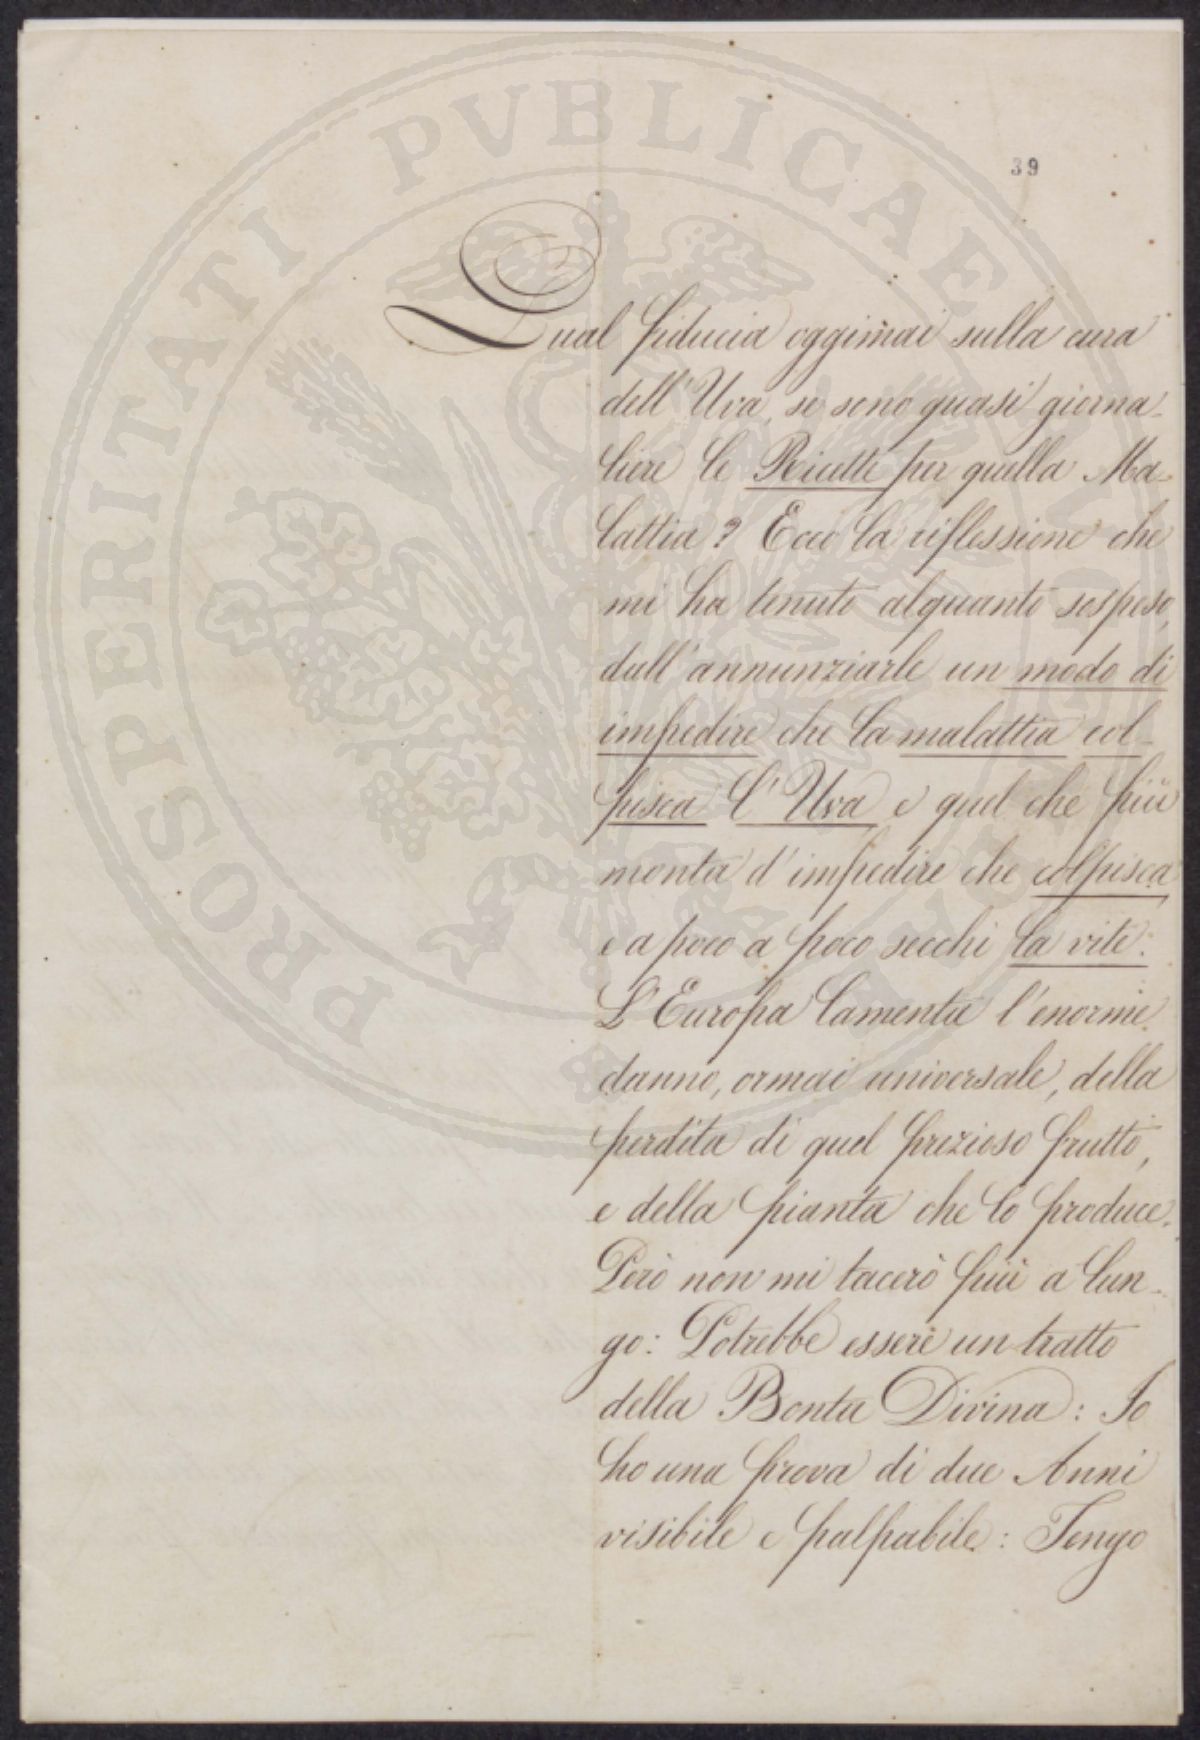 PROSPERITATI PVBLICAE
39
Qual fiducia oggimai sulla cura
dell'Uva, se sono quasi giorna-
liere le Ricette per quella Ma-
lattia? Ecco la riflessione che
mi ha tenuto alquanto sospeso,
dall'annunziarle un modo di
impedire che la malattia col-
pisca l'Uva e quel che più
monta d'impedire che colpisca
e a poco a poco secchi la vite.
L'Europa lamenta l'enorme
danno, ormai universale, della
perdita di quel prezioso frutto,
e della pianta che lo produce.
Però non mi tacerò più a lun-
go: Potrebbe essere un tratto
della Bontà Divina: Io
ho una prova di due Anni
visibile e palpabile: Tengo